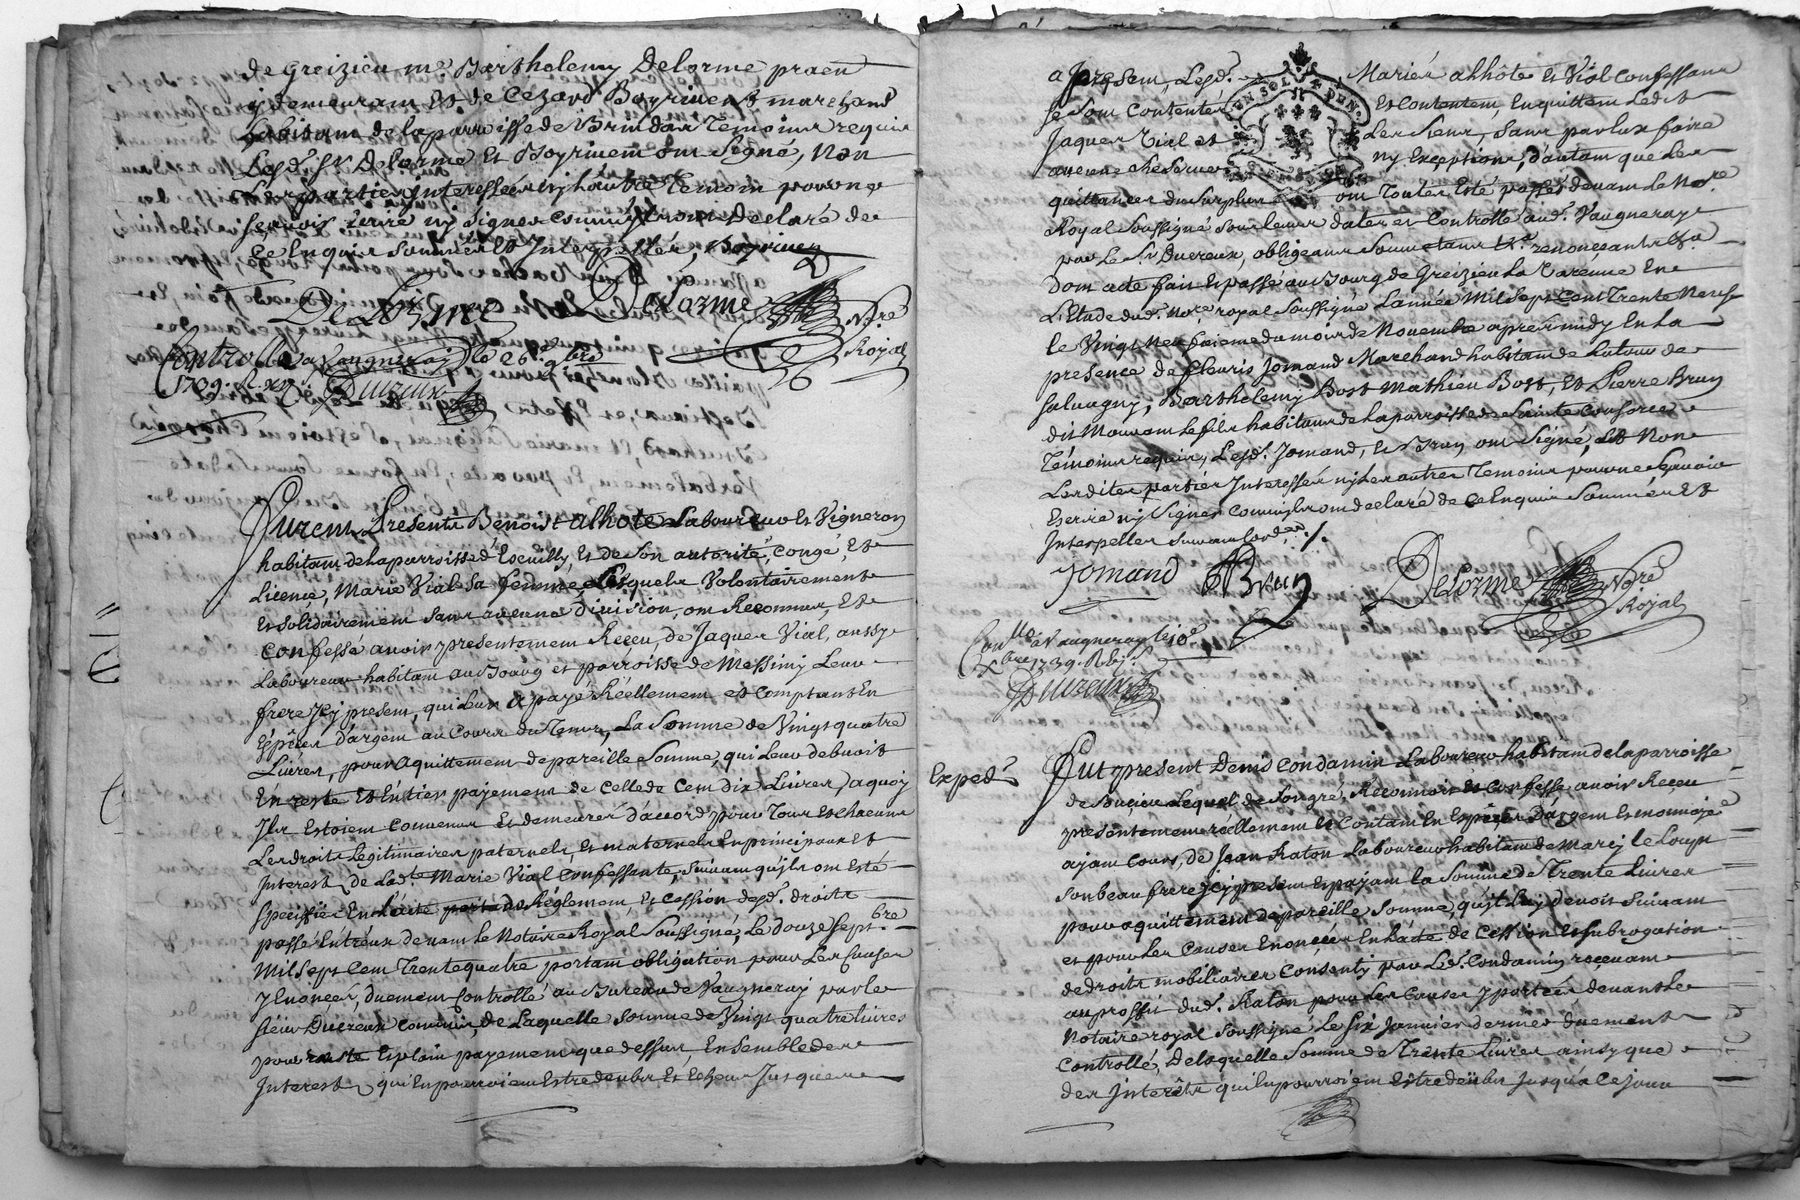 de Greizieu me Barthelemy Delorme praen
y demeurant et de Cezard Boyrivent marchand
habitant de laparroisse de Brindas Temoins requis
Lesd. sr Delorme et Boyrivent ont signé, Non
Les parties interessées ny l'autre Temoin pour ne
scavoir écrire ny signer comme ils ont Declaré de
ce Enquis sommés et Interpellés, Boyrivent
De Lorme Delorme Nore
Royal
Controllé a Vaugneray le 26e 9bre
1739. R. xij s. Ducreux
Furent Presents Benoist alhôte Laboureur et Vigneron
habitant de laparroisse d'Escully, et de Son autorité, congé, et
Licence, Marie Vial sa femme, Lesquels Volontairement
et solidairement sans aucune Division, ont Reconnus, et
confessé avoir presentement Reçeu, de Jaques Vial, aussy
Laboureur habitant au Bourg et parroisse de Messimy Leur
frere Icy present, qui Leur a payé Réellement et comptant En
Espêces d'argent au Cours du Tems, La Somme de Vingt quatre
Livres, pour aquittement de pareille Somme, qui Leur debvoit
En reste et Entier payement de Celle de Cent dix Livres, aquoy
Ils Estoient Convenus et demeurés d'accord pour Tous et chacuns
Les droits Legitimaires paternels, et maternels En principaux et
Interest de Lad.te Marie Vial confessante, suivant qu'ils ont Esté
specifiés En L'acte portant Réglement, et cession desd. droits
passé Entreux devant le Notaire Royal Soussigné, Le douze Septbre
Mil Sept Cent Trente quatre portant obligation pour Les Causes
y Enoncées, duement Controllé au Bureau de Vaugneray par le
sieur Ducreux commis, de Laquelle somme de Vingt quatre livres
pour reste Et plain payement que dessus, Ensemble des
Interest qui En pourroient Estre deubs et Echeus Jusques
a Present, Lesd. Mariés alhôte et Vial Confessans
se sont Contentés et Contentent, En quittent Ledit
Jaques Vial et Les Siens, Sans par Eux faire
aucune reserve ny Exception, d'autant que Les
quittances du surplus ont Toutes Esté passés devant Le Nore
Royal Soussigné sous leurs dates et Controllé aud. Vaugneray
par Le Sr Ducreux, obligeans soumettans &a. renonçants &a
Dont acte fait et passé au Bourg de Greizieu La Varenne En
L'Etude dud. Nore royal soussigné L'année Mil Sept Cent Trente Neuf
le Vingt Neufvieme du mois de Novembre après midy En La
presence de fleuris Jomand Marchand habitant de La tour de
Salvagny, Barthelemy Bost Mathieu Bost, et Pierre Brun
dit Mouvant Le fils habitans de la parroisse de Sainte Consorce
Témoins requis, Lesd. Jomand, et Brun ont Signé, et Non
Lesdites parties Interessés ny Les autres Temoins pour ne Sçavoir
Escrire ny Signer Comm'ils ont declaré de ce Enquis Sommés Et
Interpellés Suivant Lord.ce /.
Jomand Brun Delorme Nore
Royal
Conllé a Vaugneray le 10e
Xbre 1739. R.
Ducreux
Exped.
Fut present Denis Condamin Laboureur habitant de la parroisse
de Lequel de Son gré, Reconnois et Confesse, avoir Reçeu
presentement réellement et Contant En Espêces D'argent et monnoye
ayant Cours, de Jean Raton Laboureur habitant de Marcy le Loup
son beau frere Icy present et payant la Somme de Trente Livres
pour aquittement de pareille Somme, qu'il Luy devoit Suivant
et pour Les Causes Enonçées En L'acte de Cession et Subrogation
de droits mobiliaires Consenty par Led. Condamin reçevant
au proffit dud. Raton pour Les Causes y portées, devant Le
Notaire royal Soussigné Le Six Janvier dernier duement
Controllé, De laquelle Somme de Trente Livres ainsy que
des Interêts qui En pourroient Estre deübs Jusqu'a Ce jour